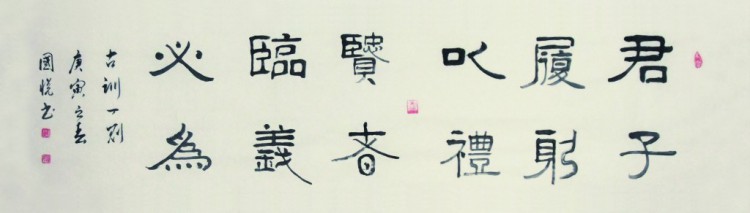 君子
履躬
以禮
賢者
臨義
必為
古訓一則
庚寅之春
國 书